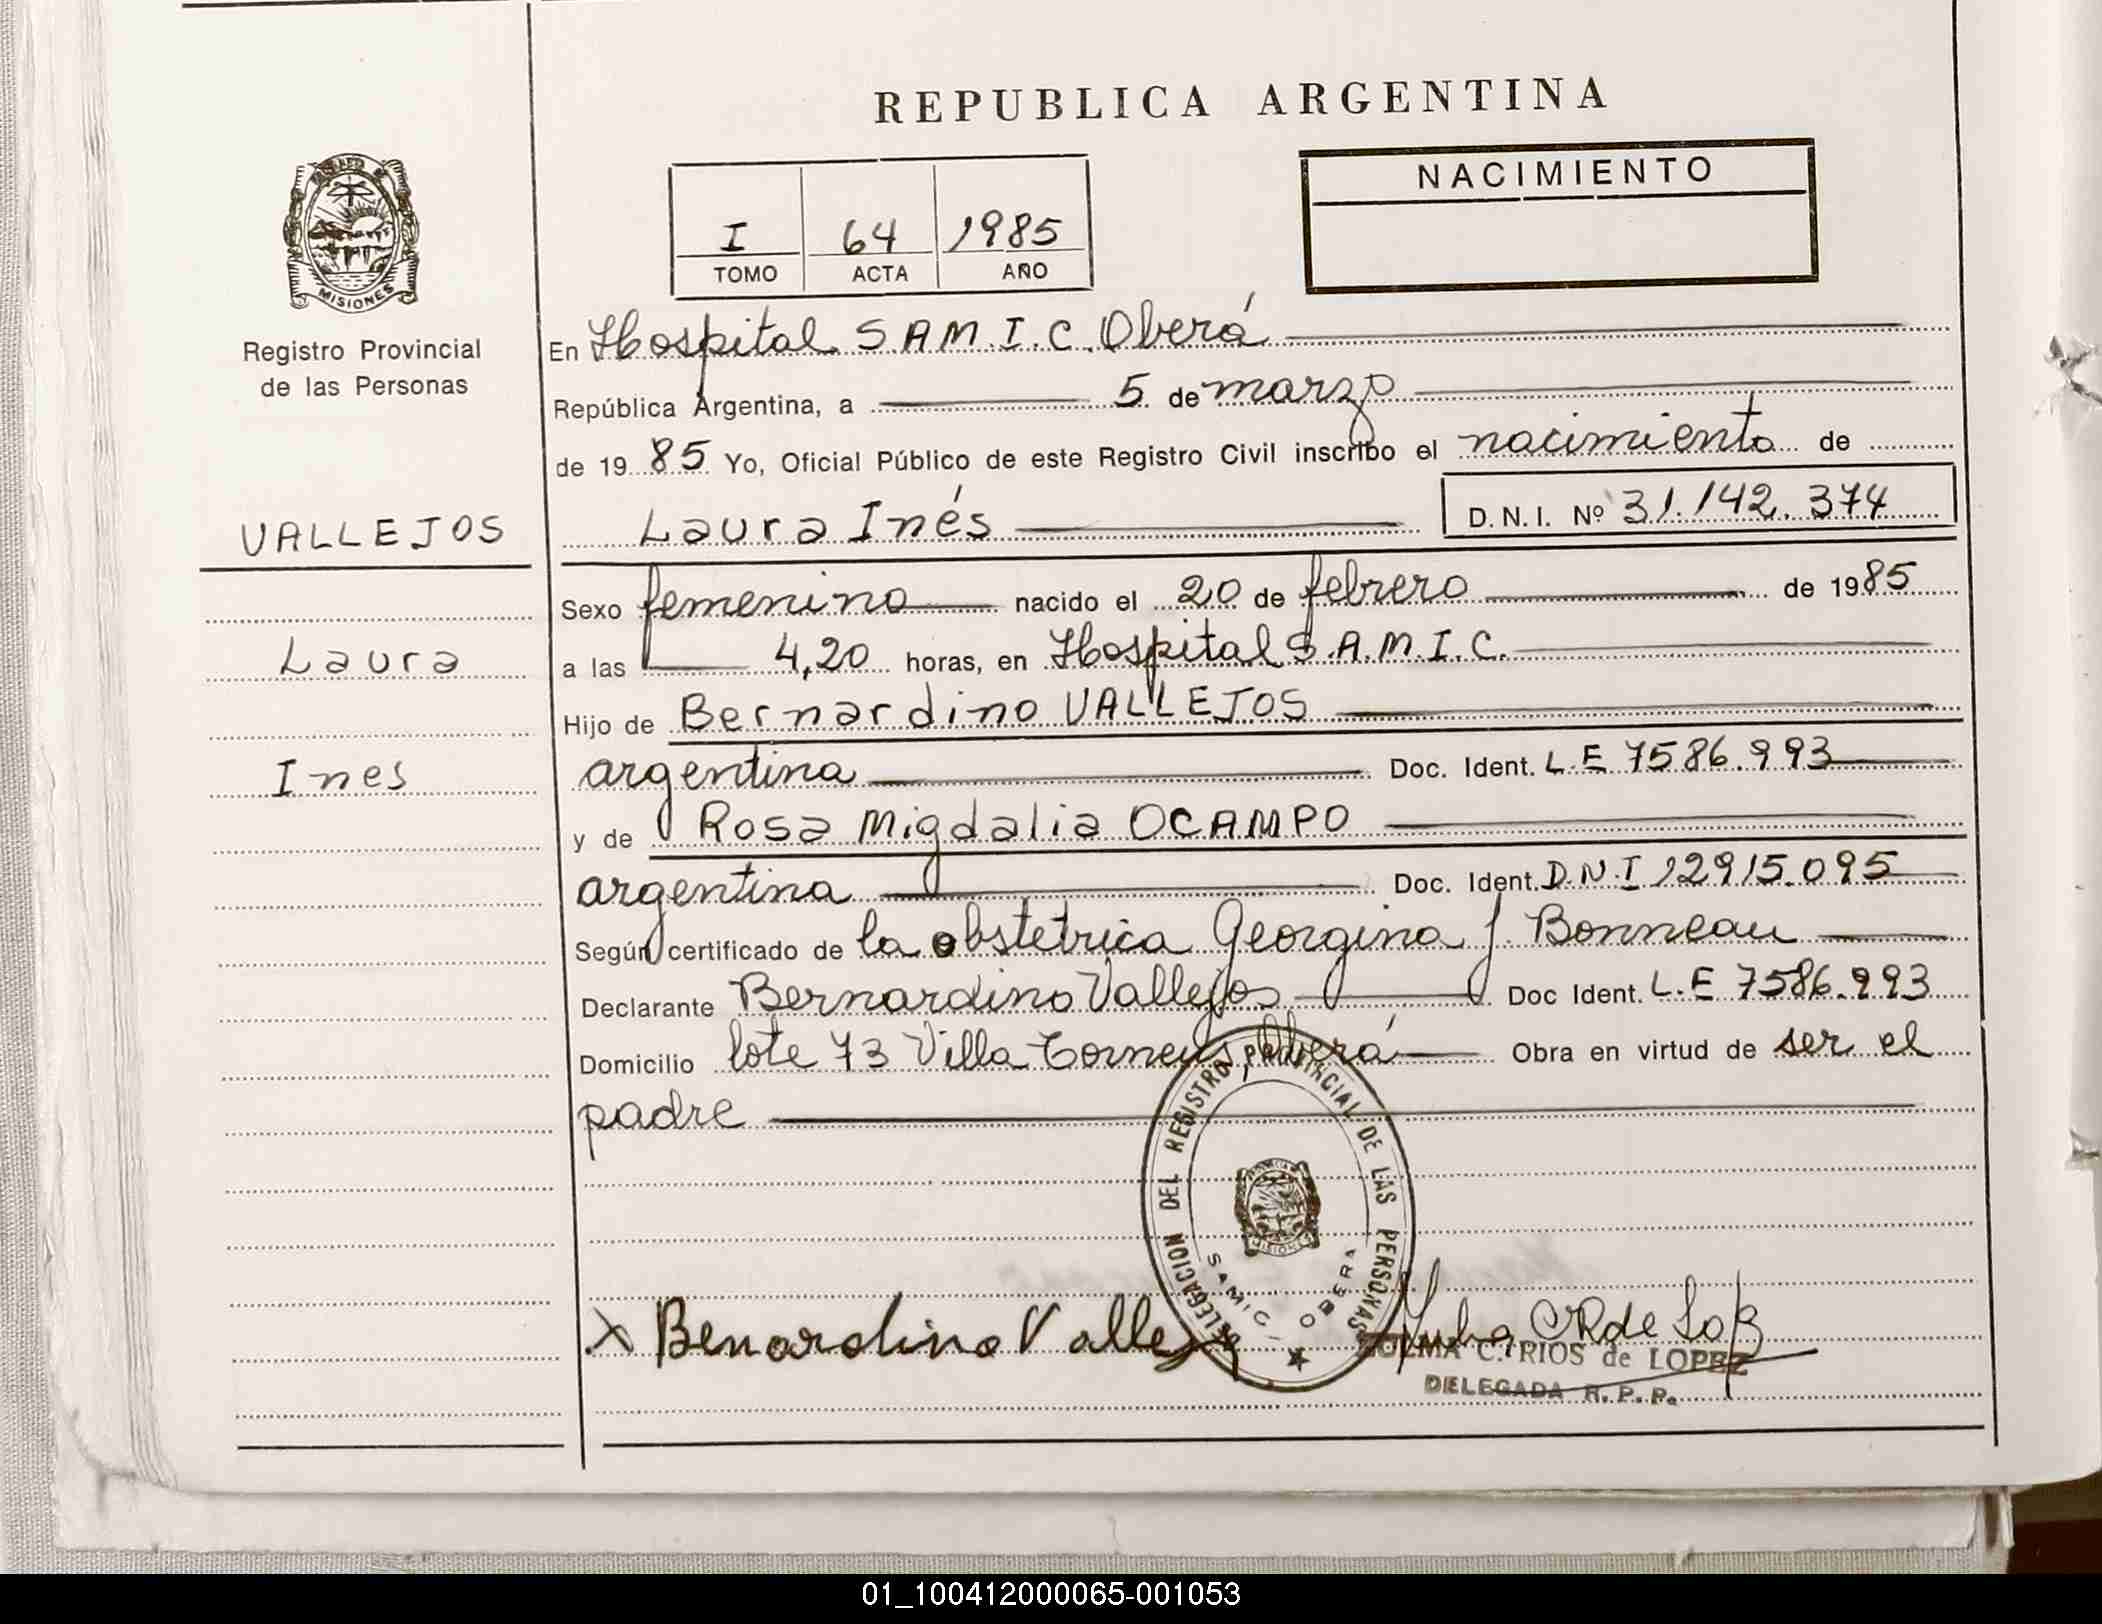 REPUBLICA ARGENTINA
NACIMIENTO
I 64 1985
TOMO ACTA AÑO
MISIONES
Registro Provincial
de las Personas
VALLEJOS
Laura
Ines
En Hospital S.A.M.I.C. Oberá
República Argentina, a 5 de marzo
de 1985 Yo, Oficial Público de este Registro Civil inscribo el nacimiento de
Laura Inés D.N.I. Nº 31.142.374
Sexo femenino nacido el 20 de febrero de 1985
a las 4,20 horas, en Hospital S.A.M.I.C.
Hijo de Bernardino VALLEJOS
argentina Doc. Ident. L.E 7586.993
y de Rosa Migdalia OCAMPO
argentina Doc. Ident. D.N.I 12915.095
Según certificado de la obstetrica Georgina J. Bonneau
Declarante Bernardino Vallejos Doc Ident. L.E 7586.993
Domicilio lote 73 Villa Oberá Obra en virtud de ser el
padre
DELEGACION DEL REGISTRO PROVINCIAL DE LAS PERSONAS
MISIONES
SAMIC - OBERA
X Benardino Vallejo
ZULMA C. RIOS de LOPEZ
DELEGADA R. P. P.
01_100412000065-001053